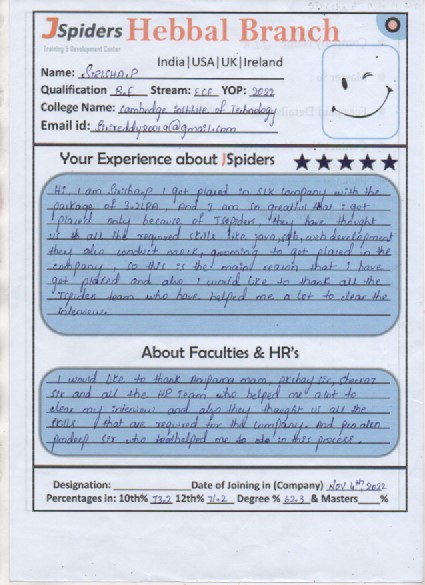 JSpiders Hebbal Branch
Training & Development Center
India|USA|UK|Ireland
Name: Sirisha.P
Qualification B.E Stream: ECE YOP: 2022
College Name: Cambridge Institute of Technology
Email id: @gmail.com
Your Experience about JSpiders
Hi, I am Sirisha.P I get placed in SLK company with the
package of 3.2LPA. And I am so greatful that I got
placed only because of Jspiders, they have thought
us with all the required skills like java, sql, web development
they also conduct mock, grooming to get placed in the
company so this is the main reason that I have
got placed and also I would like to thank all the
Jspider team who have helped me a lot to clear the
interview.
About Faculties & HR's
I would like to thank Anupama mam, Akshay sir,
sir and all the HR Team who helped me alot to
clear my interview and also they thought us all the
skills that are required for the company. And
pradeep sir who helped me to in this process.
Designation: Date of Joining in (Company) Nov 4th, 2022
Percentages in: 10th% 73.2 12th% 71.2 Degree % 62.3 & Masters %